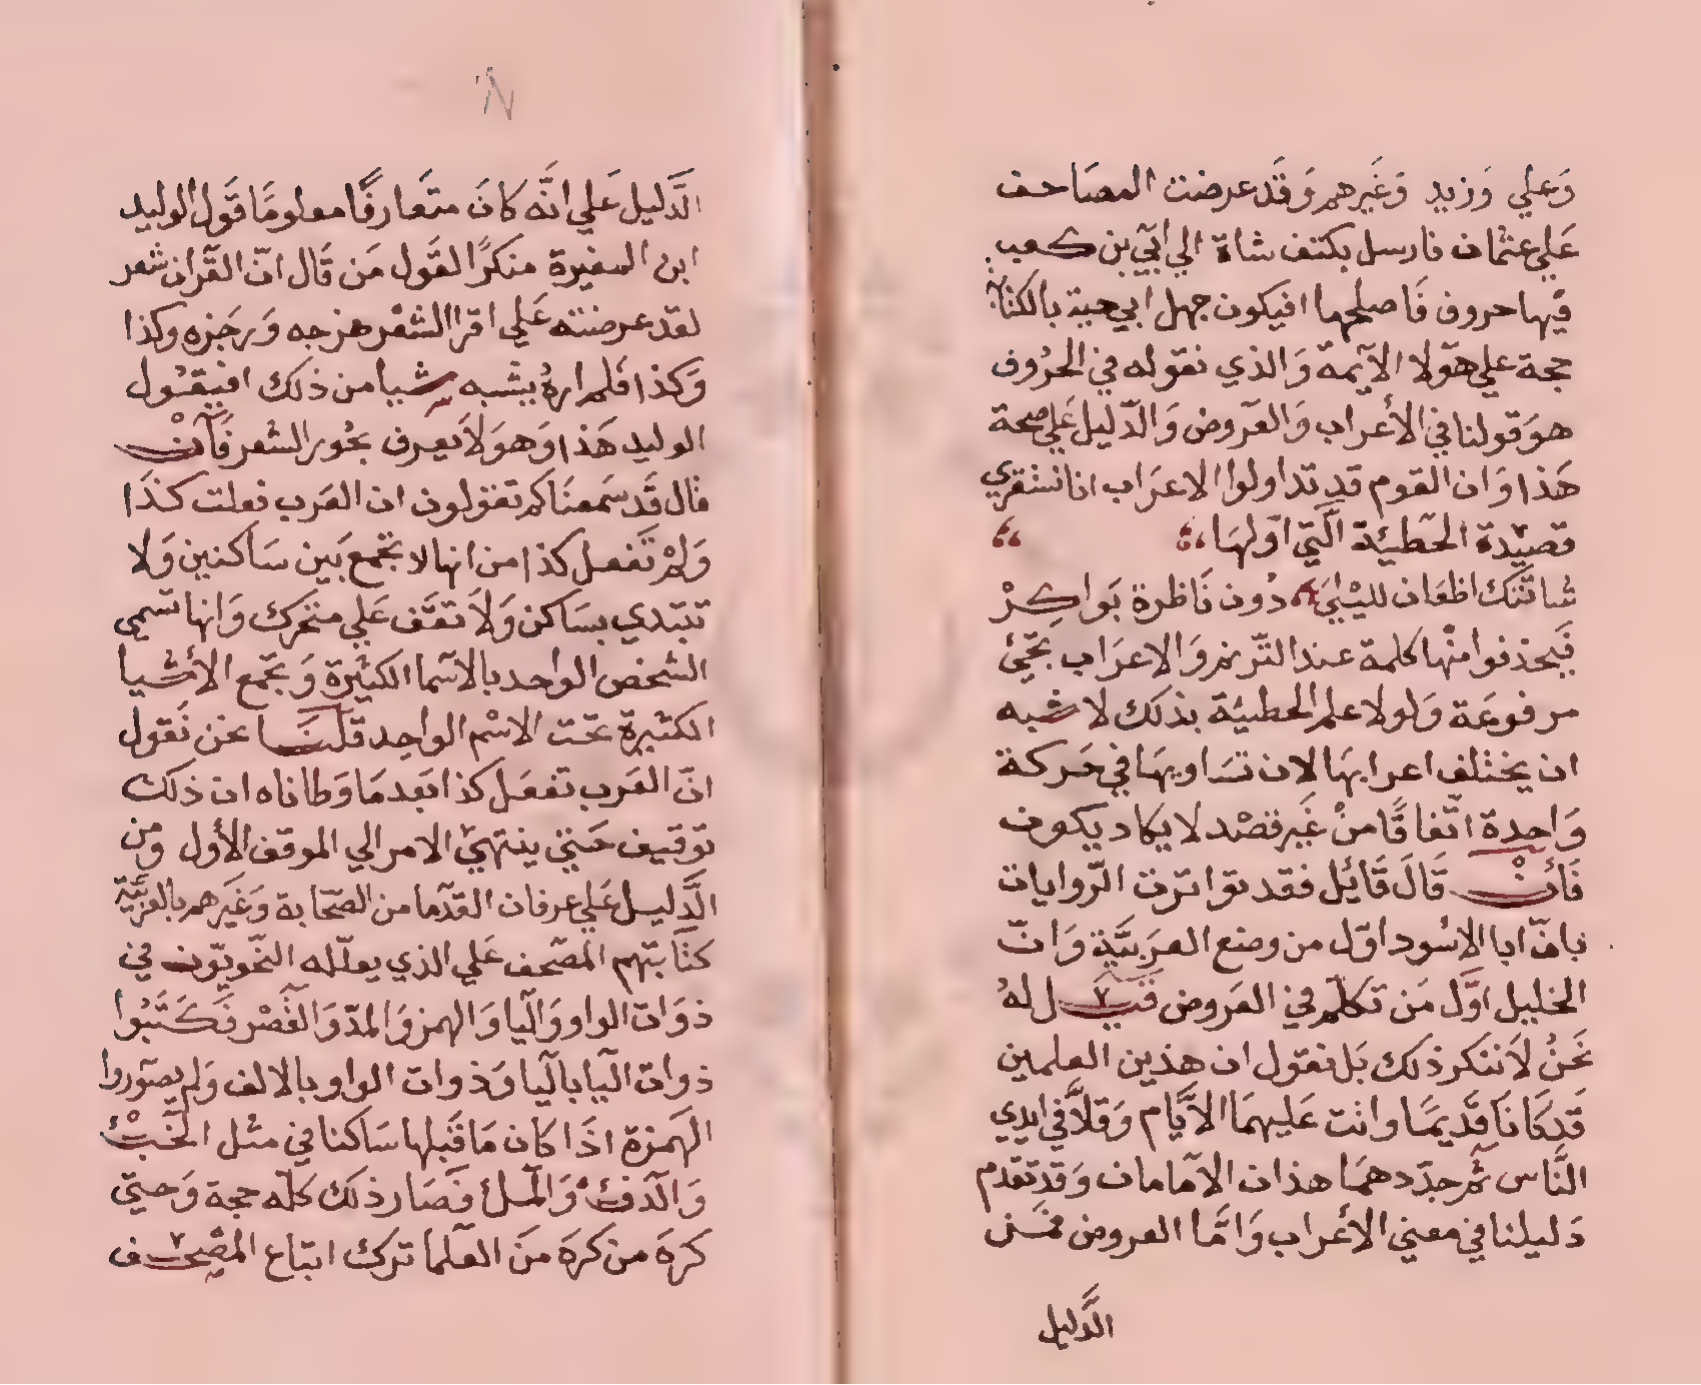 وَعلي وَزيد وَغَيرهم وَقَد عرضت المصَاحف
عَلي عثمان فارسل بكتف شاة الي ابَيّ بن كعب
فيها حروف فَاصلحها افيكون جهل ابي حية بالكتابة
حجة علي هَولا الآيمة وَالذي نقوله في الحرُوف
هوَ قولنا في الأعراب وَالعَروض وَالدّليل عَلي صحة
هَذا وَان القوم قد تداولوا الاعرَاب انا نستقري
قصيّدة الحَطيئة الَّتي اوّلهَا
شاقتَك اظعَان لليْلي دُون نَاظرة بَواكِرْ
فَيحذفوا منْها كلمة عند التّرنم وَالاعرَاب تجَئ
مرفوعَة وَلولا علم الحطيئة بذلك لا شبه
ان يختلف اعرابهَا لان تسَاويهَا في حَركة
وَاحِدة اتّفاقًا منْ غَير قصْد لا يكاد يكون
فَأنْ قَالَ قَائِل فقد تواترت الرّوايات
بانّ ابا الاسْود اوّل من وضع العرَبيَّة وَانّ
الخليل اوَّل مَن تكلّم في العَروض قَيل لهُ
نَحَنُ لاَ ننكر ذلك بَل نقول ان هذين العلمين
قَد كَانَا قَديمًا وانت عَليهمَا الايَّام وَقلاَّ في ايدي
النَّاس ثم جدّدهمَا هذان الامامان وَقد تقدم
دَليلنا في معني الأعْراب وَامَّا العروض فمَن
الدَّليل
الدَّليل عَلي انَّه كَانَ متعَارفًا معلومًا قَول الوليد
ابن المغيرة منكرًا لقَول مَن قَال انّ القرآن شعر
لقد عرضته عَلي اقرا الشعْر هزجه وَرجَزه وكذا
وَكذا فَلم ارهُ يشبه شيا من ذلك افيقُول
الوليد هَذا وَهوَ لاَ يعرف بحُور الشعر فَأنْ
قال قَد سَمعنَاكم تقولون ان العَرب فعلت كذَا
وَلمْ تَفعل كذا من انها لا تجمع بَين سَاكنين وَلا
تبتدي بسَاكن وَلاَ تقَف عَلي متحَرك وَانها تسمي
الشخص الواحد بالاسما الكثيرة وَتجَمع الأشيا
الكثيرة تحت الاسْم الواحِد قلنَا نحن نَقول
انّ العَرب تفعَل كذا بَعد مَا وَطاناه ان ذلك
توقيف حَتي ينتهيْ الامر الي الموقف الأول وَمن
الدَّليل عَلي عرفان القدَما من الصّحابة وَغَيرهم بالعرَبيَّة
كتَابتهم المصْحف عَلي الذي يعلّله النّحويّون في
ذوَات الواو وَاليا وَالهمز وَالمدّ وَالقَصْر فَكتَبُوا
ذوات اليا باليا وَذوات الواو بالالف وَلم يصَوروا
الهَمزة اذَا كان مَا قَبلها سَاكنا في مثل الخَبْئ
وَالدّفْئ وَالملْ فَصَار ذلك كلّه حجة وَحتيّ
كرهَ من كرهَ منَ العلَما تركَ اتبّاع المصْحف